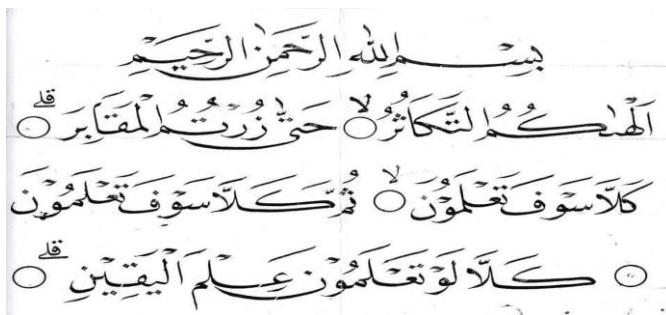 بِسْمِ اللهِ الرَّحْمٰنِ الرَّحِيْمِ
اَلْهٰىكُمُ التَّكَاثُرُ ۙ ○ حَتّٰى زُرْتُمُ الْمَقَابِرَ ۗ ○
كَلَّا سَوْفَ تَعْلَمُوْنَ ۙ ○ ثُمَّ كَلَّا سَوْفَ تَعْلَمُوْنَ
○ كَلَّا لَوْ تَعْلَمُوْنَ عِلْمَ الْيَقِيْنِ ۗ ○